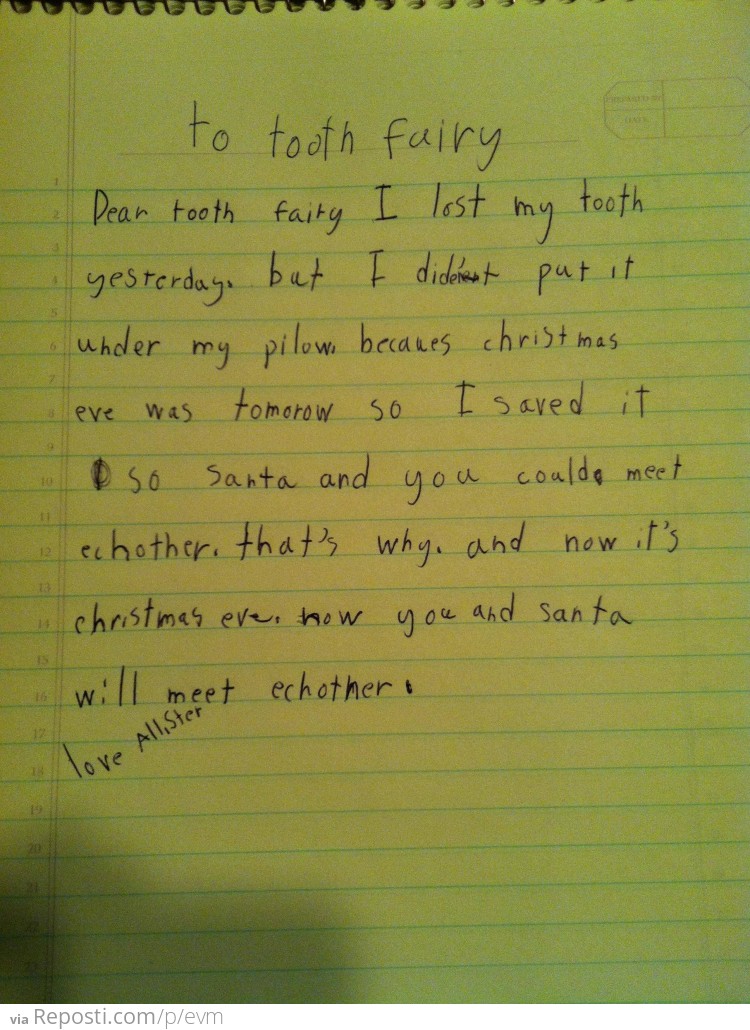 to tooth fairy
Dear tooth fairy I lost my tooth
yesterday. but I put it
under my pilow. becaues christmas
eve was tomorow so I saved it
so santa and you could meet
echother. that's why. and now it's
christmas eve. now you and santa
will meet echother.
love Allister
1
2
3
4
5
6
7
8
9
10
11
12
13
14
15
16
17
18
19
20
21
22
23
via Reposti.com/p/evm